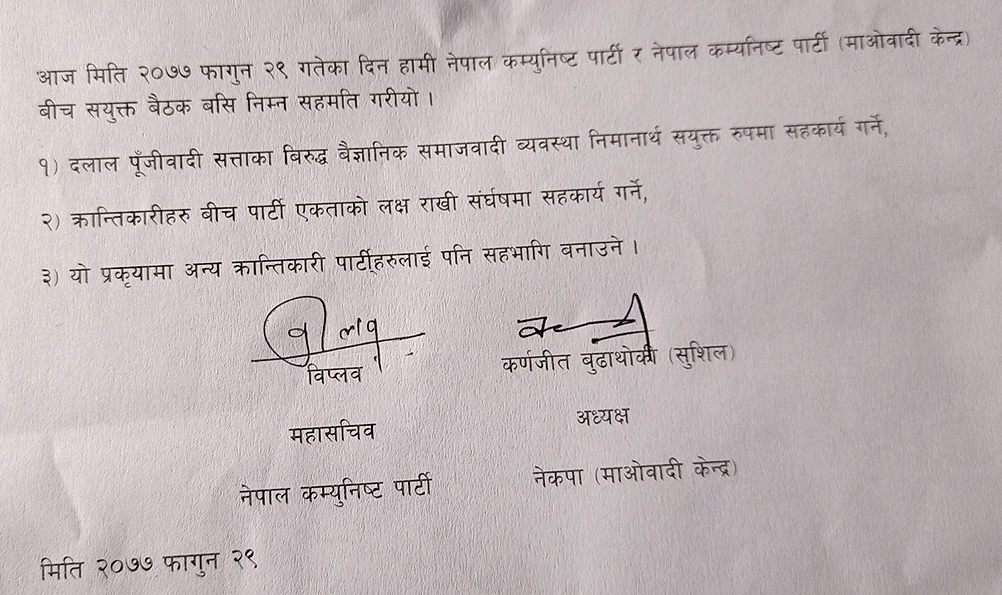 आज मिति २०७७ फागुन २९ गतेका दिन हामी नेपाल कम्युनिष्ट पार्टी र नेपाल कम्यनिष्ट पार्टी (माओवादी केन्द्र)
बीच सयुक्त बैठक बसि निम्न सहमति गरीयो ।
१) दलाल पूँजीवादी सत्ताका बिरुद्ध बैज्ञानिक समाजवादी व्यवस्था निमानार्थ सयुक्त रुपमा सहकार्य गर्ने,
२) क्रान्तिकारीहरु बीच पार्टी एकताको लक्ष राखी संर्घषमा सहकार्य गर्ने,
३) यो प्रकृयामा अन्य क्रान्तिकारी पार्टी्हरुलाई पनि सहभागि बनाउने ।
विप्लव कर्णजीत बुढाथोकी (सुशिल)
महासचिव अध्यक्ष
नेपाल कम्युनिष्ट पार्टी नेकपा (माओवादी केन्द्र)
मिति २०७७ फागुन २९